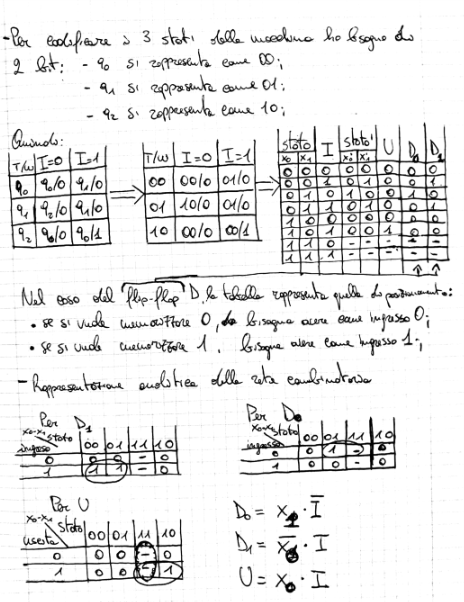 -Per codificare i 3 stati della macchina ho bisogno di
2 bit: - q0 si rappresenta come 00;
- q1 si rappresenta come 01;
- q2 si rappresenta come 10;
Quindi:
T/W I=0 I=1
q0 q0/0 q1/0
q1 q2/0 q1/0
q2 q0/0 q0/1
T/W I=0 I=1
00 00/0 01/0
01 10/0 01/0
10 00/0 00/1
stato I stato' U D0 D1
x0 x1 x0' x1'
0 0 0 0 0 0 0 0
0 0 1 0 1 0 0 1
0 1 0 1 0 0 1 0
0 1 1 0 1 0 0 1
1 0 0 0 0 0 0 0
1 0 1 0 0 1 0 0
1 1 0 - - - - -
1 1 1 - - - - -
Nel caso del flip-flop D, la tabella rappresenta quella di posizionamento:
• se si vuole memorizzare 0, bisogna avere come ingresso 0;
• se si vuole memorizzare 1, bisogna avere come ingresso 1;
- Rappresentazione analitica della rete combinatoria
Per D1
x0-x1 stato 00 01 11 10
ingresso
0 0 0 - 0
1 1 1 - 0
Per D0
x0-x1 stato 00 01 11 10
ingresso
0 0 1 - 0
1 0 0 - 0
Per U
x0-x1 stato 00 01 11 10
uscita
0 0 0 - 0
1 0 0 - 1
D0 = x1 · I̅
D1 = x̅0 · I
U = x0 · I